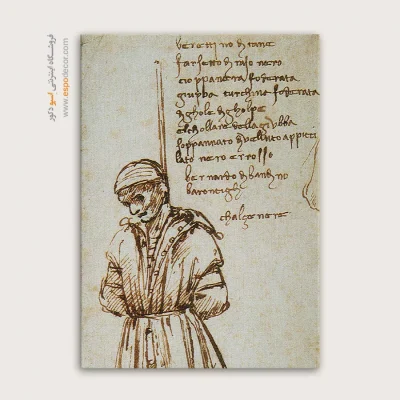 berettino di tane
farsetto di raso nero
cioppa nera foderata
giubba turchina foderata
di ghole di gholpe
el chollare della giubba
soppannato di velluto appicci
lato nero e rosso
bernardo di bandino
barontigli
chalze nere
فروشگاه اینترنتی اسپو دکور
www.espodecor.com